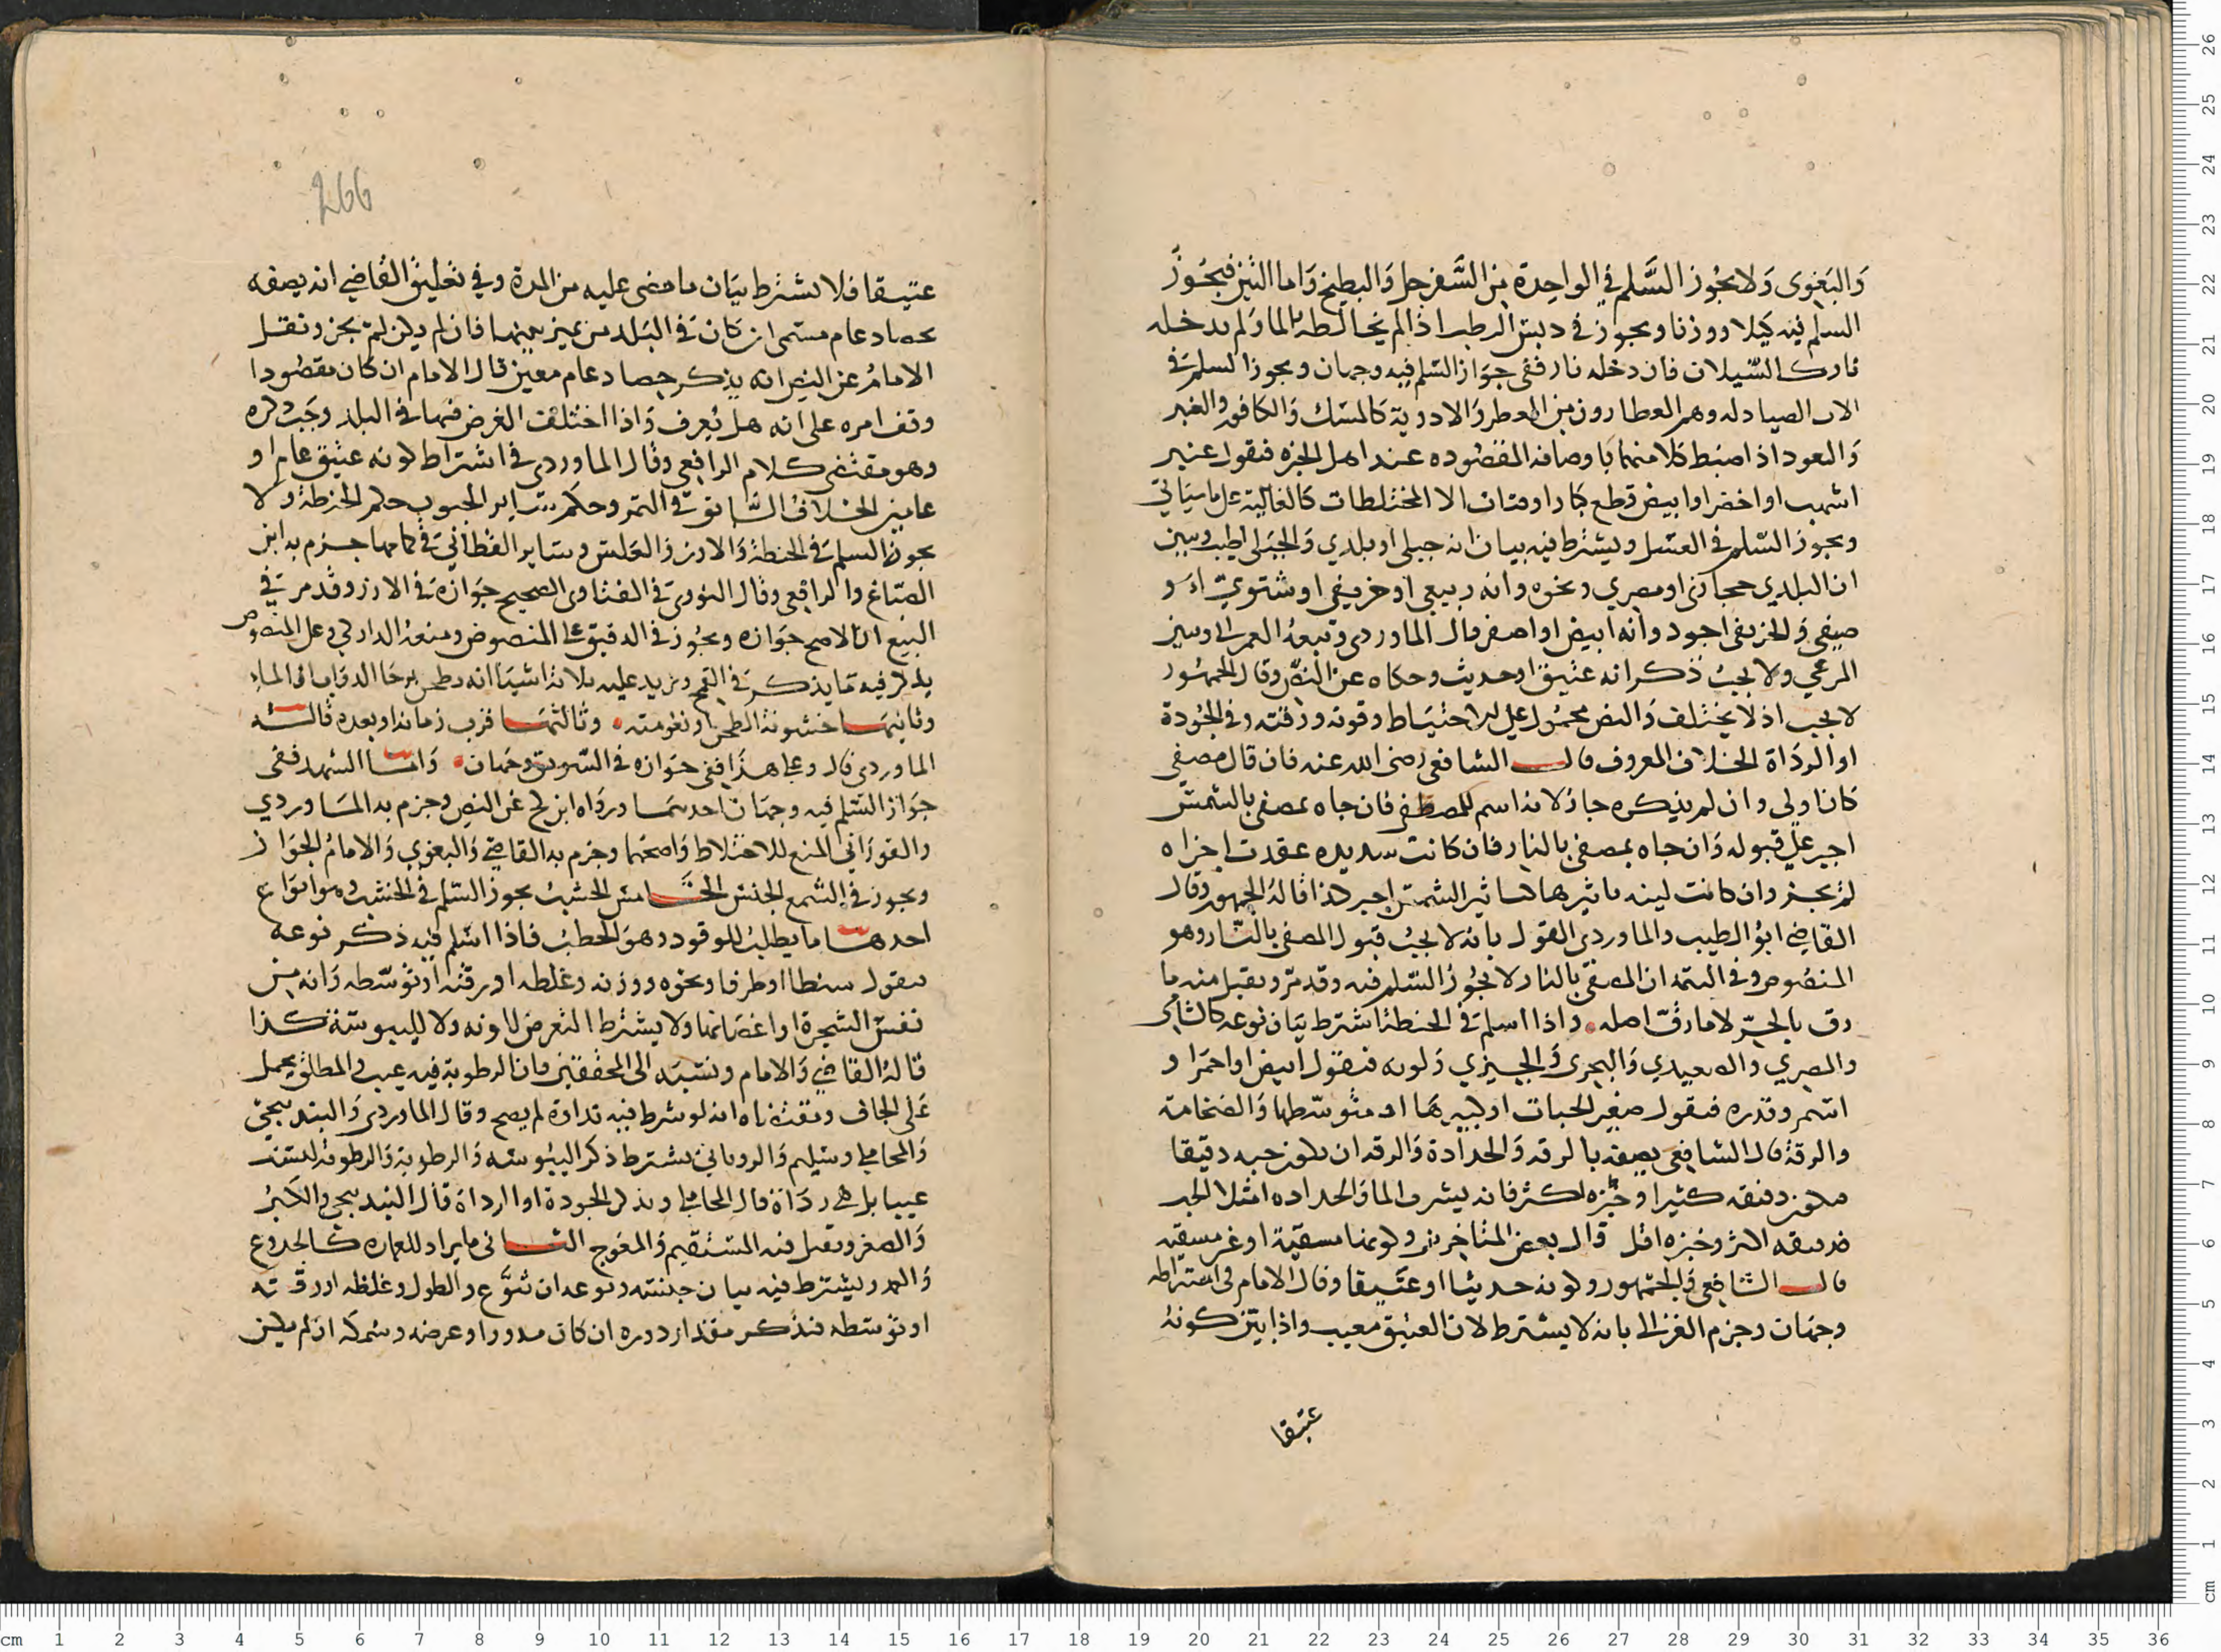 وَالبَغوى وَلا يجُوز السَّلم في الواحِدة مِن السَّفرجل وَالبطيخ وَاما التين فيجُوز
السلم فيه كيلا ووزنا ويجوز في دبس الرطب اذا لم يخالطه بالما وَلم يدخله
نار كالسّيلان فان دخله نار ففى جوَاز السّلم فيه وجهان ويجوز السلم في
الصيادله وهم العطارون من العطر وَالادوية كالمسْك وَالكافور والعنبر
وَالعود اذا ضبط كلا منهما باوصافه المقصُوده عند اهل الخبره فيقول عنبر
اشهب او اخضر او ابيض قطع كبارا وفتات لا المختلطات كالغالية على ما سيَاتي
ويجوز السّلم في العسَل ويشترط فيه بيان انه جبلي او بلدي وَالجبَلى اطيب وبين
ان البلدي حجازى او مصري ونحوه وانه ربيعى او خريفى او شتويّ او
صيفي وَالخريفى اجود وانه ابيض او اصفر قال الماوردى وتبعهُ العمرانى وبين
المرعي ولا يجبُ ذكر انه عتيق او حديث وحكاه عن النصّ وقال الجمهُور
لا يجب اذ لا يختلف وَالنص محمُول على الاحتيَاط وقوته ورقته وفي الجُودة
او الردَاة الخلاف المعروف قال الشافعي رضى الله عنه فان قال مصفي
كان اولى وان لم يذكره جاز لانه اسم للمصطفى فان جاه بمصفى بالشمش
اجبر على قبوله وَان جاه بمصفى بالنار فان كانت شديده عقدت اجزاه
لم يجبر وان كانت لينه تاثيرها كتاثير الشمس اجبر كذا قالهُ الجمهور وقال
القاضي ابوُ الطيب والماوردى القول بانه لا يجبُ قبول المصفى بالنّار وهو
المنصُوص وفي التتمه ان المصفّى بالنار لا يجُوز السّلم فيه وقد مرّ ويقبل منه ما
رق بالحرّ لا ما رقّ اصله واذا اسلم في الحنطة اشترط بيَان نوعه كالشامى
والمصري والصعيدي وَالبحرى وَالجيزي وَلونه فيقول ابيض او احمرَ او
اسمر وقدره فيقول صغير الحبات او كبيرهَا او متوسّطها وَالضخامة
والرقة قال الشافعى يصفه بالرقه وَالحدادة وَالرقه ان يكون حبه دقيقا
فيكون دقيقه كثيرا وخبزه اكثر فانه يشرب الما وَالحداده امتلا الحب
فدقيقه اكثر وخبزه اقل قال بعض المتاخرين ولونها مسقيّة او غير مسقيه
قال الشافعي وَالجمهور ولونه حديثا او عتيقا وقال الامام في اشتراطه
وجهَان وجزم الغزالى بانه لا يشترط لان العتيق معيب واذا بيّن كونهُ
عتيقا
266
عتيقا فلا يشترط بيَان ما مضى عليه من المدة وفي تعليق القاضي انه يصفه
بحصاد عام مسمى ان كان في البَلد من يميز بينهما فان لم يكن لم يجز ونقل
الامامُ عن النص انه يذكر حصاد عام معين قال الامام ان كان مقصُودا
وقف امره على انه هل يُعرف وَاذا اختلف الغرض فيها في البلد وجَب ذكره
وهو مقتضى كلام الرافعي وقال الماوردى في اشتراط كونه عتيق عام او
عامين الخلاف السّابق في التمر وحكم ساير الحبوب حكم الحنطة ولا
يجوز السلم في الحنطة وَالارز وَالعلس وساير القطانيّ في كمامها جزم به ابن
الصبّاغ والرافعى وقال النووى في الفتاوى الصحيح جَوَازه في الارز وقد مر في
البيع ان الاصح جوَازه ويجُوز في الدقيق على المنصوص ومنعهُ الداركي وعلى المنصُوص
يذكر فيه ما يذكر في القمح ويزيد عليه ثلاثة اشيَا انه يطحن برحَا الدوَاب او الماءِ
وثانيهَا خشونة الطحن او نعومته وثالثهَا قرب زمانه او بعده قاله
الماوردى قال وعلى هذا ففى جوَازه في السّويق وجهَان وَامّا الشهد ففى
جوَاز السّلم فيه وجهَان احدهمَا ورَوَاه ابن كج عن النص وجزم به الماوردي
والفورَانى المنع للاختلاط وَاصحّهما وجزم به القاضي وَالبغوي وَالامامُ الجوَاز
ويجوز في الشمع الجنس الخامسُ الخشبُ يجوز السّلم في الخشب وهو انوَاع
احدهَا ما يطلبُ للوقود وهوَ الحَطبُ فاذا اسلم فيه ذكر نوعه
فيقول سنطا او طرفا ونحوه ووزنه وغلظه او رقته او توسّطه وَانه من
نفس الشجرة او اغصَانها ولا يشترط التعرض للونه ولا لليبوسَة كذا
قالهُ القاضي وَالامام ونسَبَه الى المحققين فان الرطوبة فيه عيب والمطلق يحمل
عَلى الجاف ومقتضاه انه لو شرط فيه نداوة لم يصح وقال الماوردى وَالبندنيجيّ
وَالمحاملى وسَليم وَالرويانى يشترط ذكر اليبُوسَه وَالرطوبة وَالرطوبة ليستْ
عيبا بل هي ردَاة قال المحاملى ويذكر الجودة او الرداة قال البندنيجي والكبرُ
وَالصغر ويقبل فيه المستقيم وَالمعوج الثانى ما يراد للعماره كالجذوع
وَالعمد ويشترط فيه بيان جنسَه ونوعه ان تنوّع والطول وغلظه او رقّته
او توسّطه فيذكر مقدار دوره ان كان مدورا وعرضه وسُمكه ان لم يكن